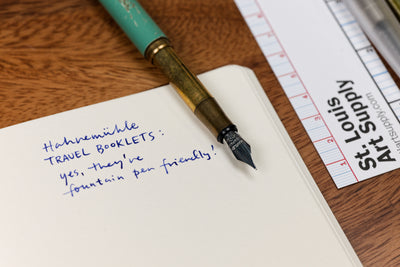 Hahnemühle
TRAVEL BOOKLETS:
yes, they're
fountain pen friendly!
St. Louis
Art Supply